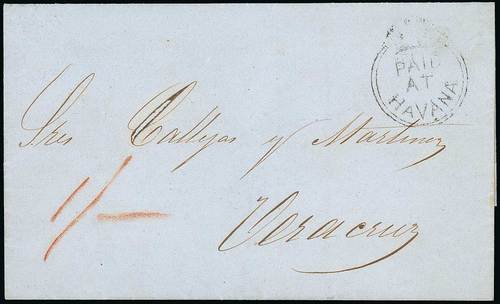 PAID
AT
HAVANA
Sres Callejas y Martinez
1/-
Veracruz